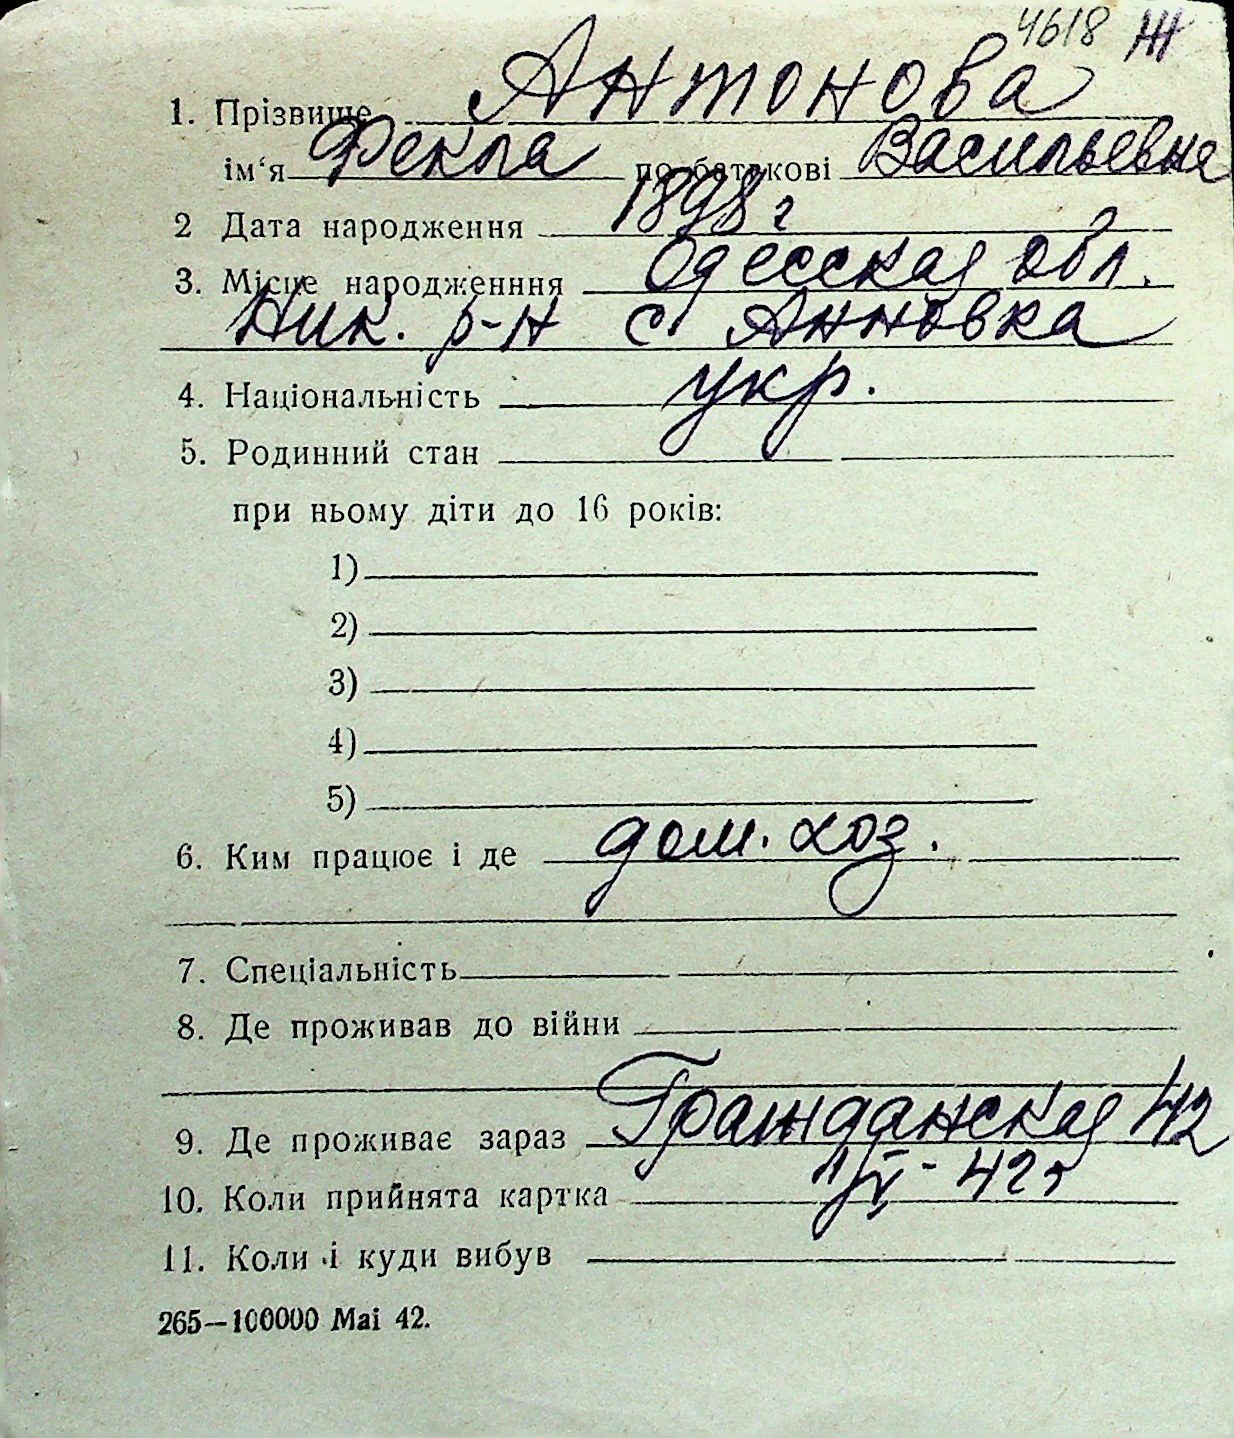 4618 Ж
1. Прізвище Антонова
ім'я Фекла по батькові Васильевна
2 Дата народження 1898 г
3. Місце народженння Одесская обл.
Ник. р-н с Анновка
4. Національність укр.
5. Родинний стан
при ньому діти до 16 років:
1)
2)
3)
4)
5)
6. Ким працює і де дом. хоз.
7. Спеціальність
8. Де проживав до війни
9. Де проживає зараз Гражданская 42
10. Коли прийнята картка 42г
11. Коли і куди вибув
265—100000 Mai 42.